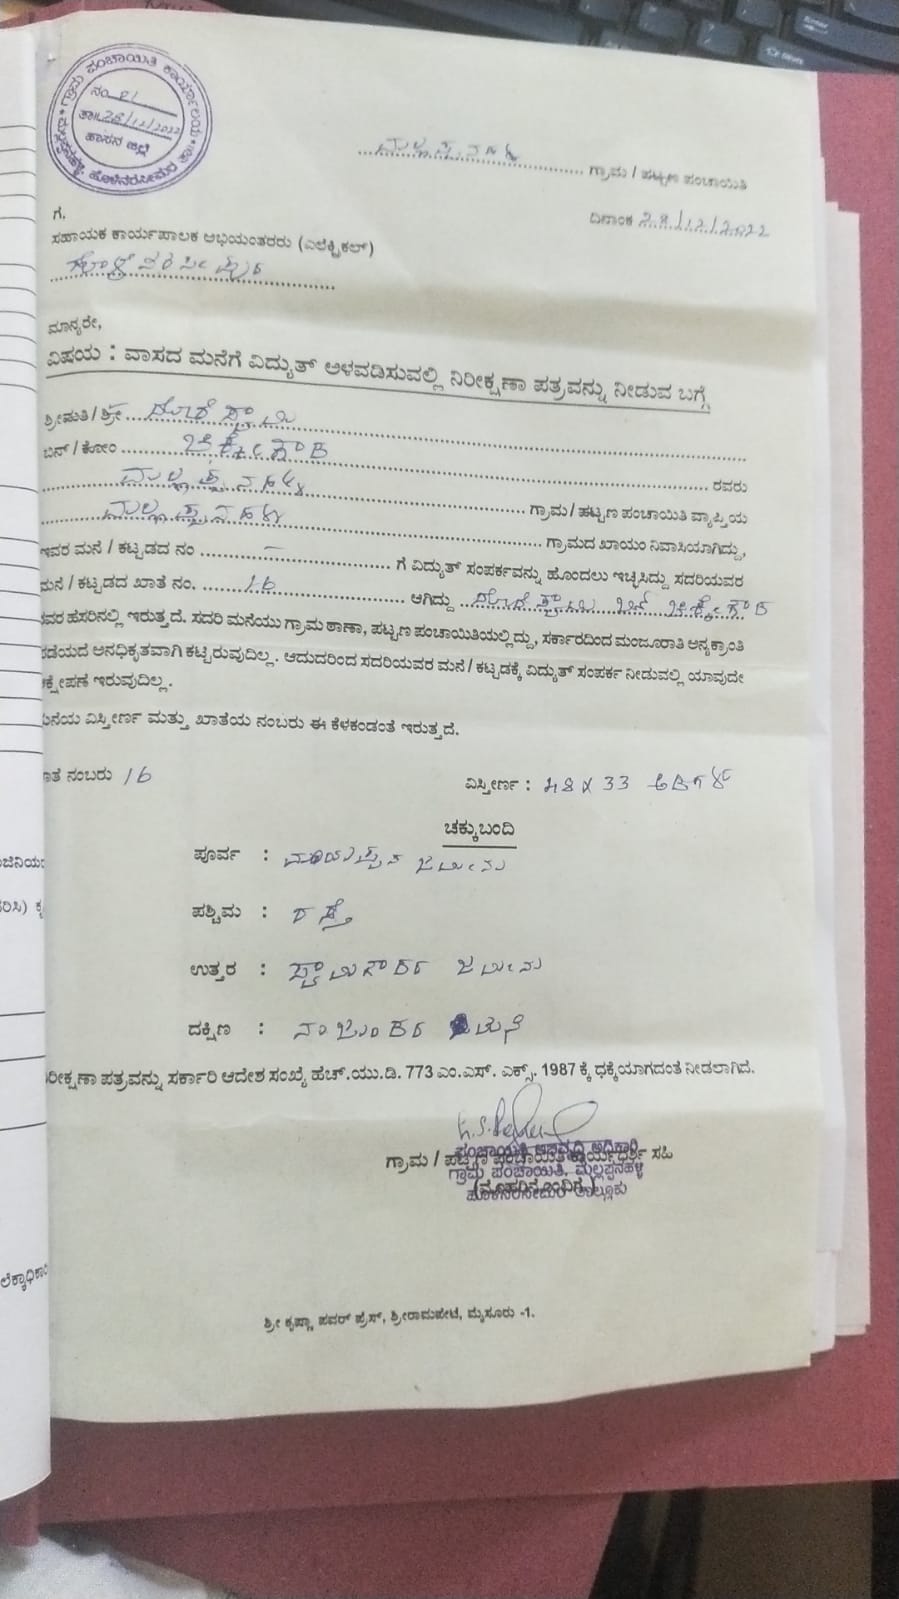 ಗ್ರಾಮ ಪಂಚಾಯಿತಿ ಕಾರ್ಯಾಲಯ
ನಂ 21
ತಾ॥ 28/12/2022
ಹಾಸನ ಜಿಲ್ಲೆ
ಮಲ್ಲಪ್ಪನಹಳ್ಳಿ ಗ್ರಾಮ / ಪಟ್ಟಣ ಪಂಚಾಯಿತಿ
ದಿನಾಂಕ 28/12/2022
ಗೆ.
ಸಹಾಯಕ ಕಾರ್ಯಪಾಲಕ ಅಭಿಯಂತರರು (ಎಲೆಕ್ಟ್ರಿಕಲ್)
ಹೊಳೆನರಸೀಪುರ
ಮಾನ್ಯರೇ,
ವಿಷಯ : ವಾಸದ ಮನೆಗೆ ವಿದ್ಯುತ್ ಅಳವಡಿಸುವಲ್ಲಿ ನಿರೀಕ್ಷಣಾ ಪತ್ರವನ್ನು ನೀಡುವ ಬಗ್ಗೆ
ಶ್ರೀಮತಿ / ಶ್ರೀ
ಬಿನ್ / ಕೋಂ
ಮಲ್ಲಪ್ಪನಹಳ್ಳಿ ರವರು
ಮಲ್ಲಪ್ಪನಹಳ್ಳಿ ಗ್ರಾಮ / ಪಟ್ಟಣ ಪಂಚಾಯಿತಿ ವ್ಯಾಪ್ತಿಯ
ಗ್ರಾಮದ ಖಾಯಂ ನಿವಾಸಿಯಾಗಿದ್ದು,
ಇವರ ಮನೆ / ಕಟ್ಟಡದ ನಂ – ಗೆ ವಿದ್ಯುತ್ ಸಂಪರ್ಕವನ್ನು ಹೊಂದಲು ಇಚ್ಛಿಸಿದ್ದು ಸದರಿಯವರ
ಮನೆ / ಕಟ್ಟಡದ ಖಾತೆ ನಂ. 16 ಆಗಿದ್ದು
ರವರ ಹೆಸರಿನಲ್ಲಿ ಇರುತ್ತದೆ. ಸದರಿ ಮನೆಯು ಗ್ರಾಮ ಠಾಣಾ, ಪಟ್ಟಣ ಪಂಚಾಯಿತಿಯಲ್ಲಿದ್ದು, ಸರ್ಕಾರದಿಂದ ಮಂಜೂರಾತಿ ಅನ್ಯಕ್ರಾಂತಿ
ಪಡೆಯದೆ ಅನಧಿಕೃತವಾಗಿ ಕಟ್ಟಿರುವುದಿಲ್ಲ. ಆದುದರಿಂದ ಸದರಿಯವರ ಮನೆ / ಕಟ್ಟಡಕ್ಕೆ ವಿದ್ಯುತ್ ಸಂಪರ್ಕ ನೀಡುವಲ್ಲಿ ಯಾವುದೇ
ಕ್ಷೇಪಣೆ ಇರುವುದಿಲ್ಲ.
ಮನೆಯ ವಿಸ್ತೀರ್ಣ ಮತ್ತು ಖಾತೆಯ ನಂಬರು ಈ ಕೆಳಕಂಡಂತೆ ಇರುತ್ತದೆ.
ಖಾತೆ ನಂಬರು 16 ವಿಸ್ತೀರ್ಣ : 48 X 33 ಅಡಿಗಳು
ಚಕ್ಕುಬಂದಿ
ಪೂರ್ವ : ಜಮೀನು
ಪಶ್ಚಿಮ : ರಸ್ತೆ
ಉತ್ತರ : ಸ್ವಾಮಿಗೌಡರ ಜಮೀನು
ದಕ್ಷಿಣ : ಮನೆ
ನಿರೀಕ್ಷಣಾ ಪತ್ರವನ್ನು ಸರ್ಕಾರಿ ಆದೇಶ ಸಂಖ್ಯೆ ಹೆಚ್.ಯು.ಡಿ. 773 ಎಂ.ಎಸ್. ಎಕ್ಸ್. 1987 ಕ್ಕೆ ಧಕ್ಕೆಯಾಗದಂತೆ ನೀಡಲಾಗಿದೆ.
ಪಂಚಾಯಿತಿ ಅಭಿವೃದ್ಧಿ ಅಧಿಕಾರಿ
ಗ್ರಾಮ / ಪಟ್ಟಣ ಪಂಚಾಯಿತಿ ಕಾರ್ಯದರ್ಶಿ ಸಹಿ
ಗ್ರಾಮ ಪಂಚಾಯಿತಿ, ಮಲ್ಲಪ್ಪನಹಳ್ಳಿ
(ಮೊಹರಿನೊಂದಿಗೆ)
ಹೊಳೆನರಸೀಪುರ ತಾಲ್ಲೂಕು
ಶ್ರೀ ಕೃಷ್ಣಾ ಪವರ್ ಪ್ರೆಸ್, ಶ್ರೀರಾಮಪೇಟೆ, ಮೈಸೂರು -1.